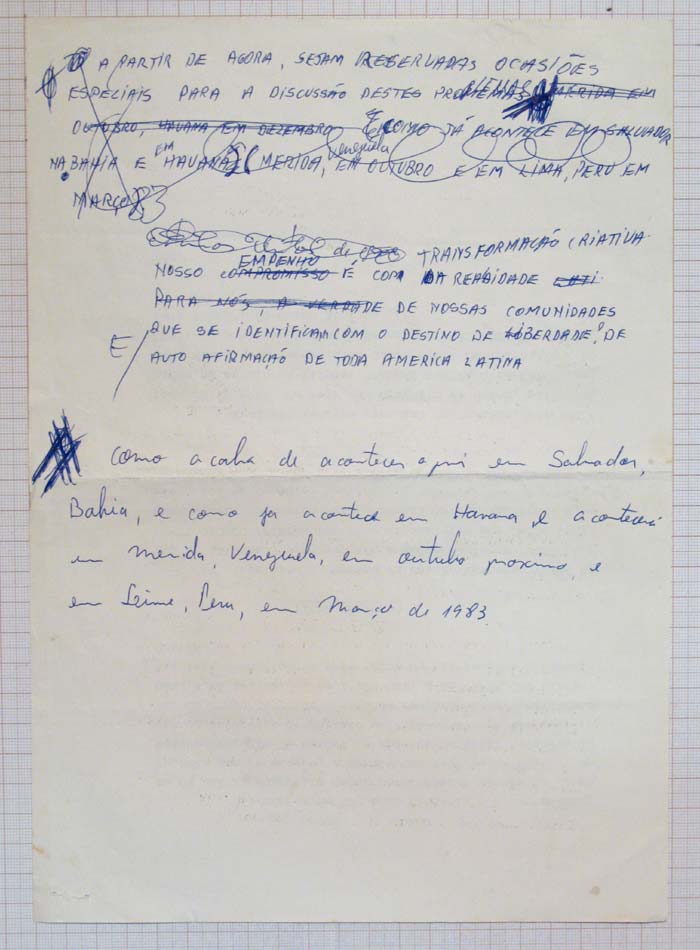 A PARTIR DE AGORA, SEJAM RESERVADAS OCASIÕES
ESPECIAIS PARA A DISCUSSÃO DESTES PROBLEMAS MERIDA EM
OUTUBRO, HAVANA EM DEZEMBRO E COMO JÁ ACONTECE EM SALVADOR
NA BAHIA E EM HAVANA, MERIDA, Venezuela EM OUTUBRO E EM LIMA, PERU EM
MARÇO 83
TRANSFORMAÇÃO CRIATIVA
EMPENHO
NOSSO COMPROMISSO É COM A REALIDADE
PARA NÓS, A VERDADE DE NOSSAS COMUNIDADES
QUE SE IDENTIFICAM COM O DESTINO DE LIBERDADE, DE
E AUTO AFIRMAÇÃO DE TODA AMERICA LATINA
Como acaba de acontecer aqui em Salvador,
Bahia, e como ja acontece em Havana, e acontecerá
em Merida, Venezuela, em outubro proximo, e
em Lima, Peru, em Março de 1983.